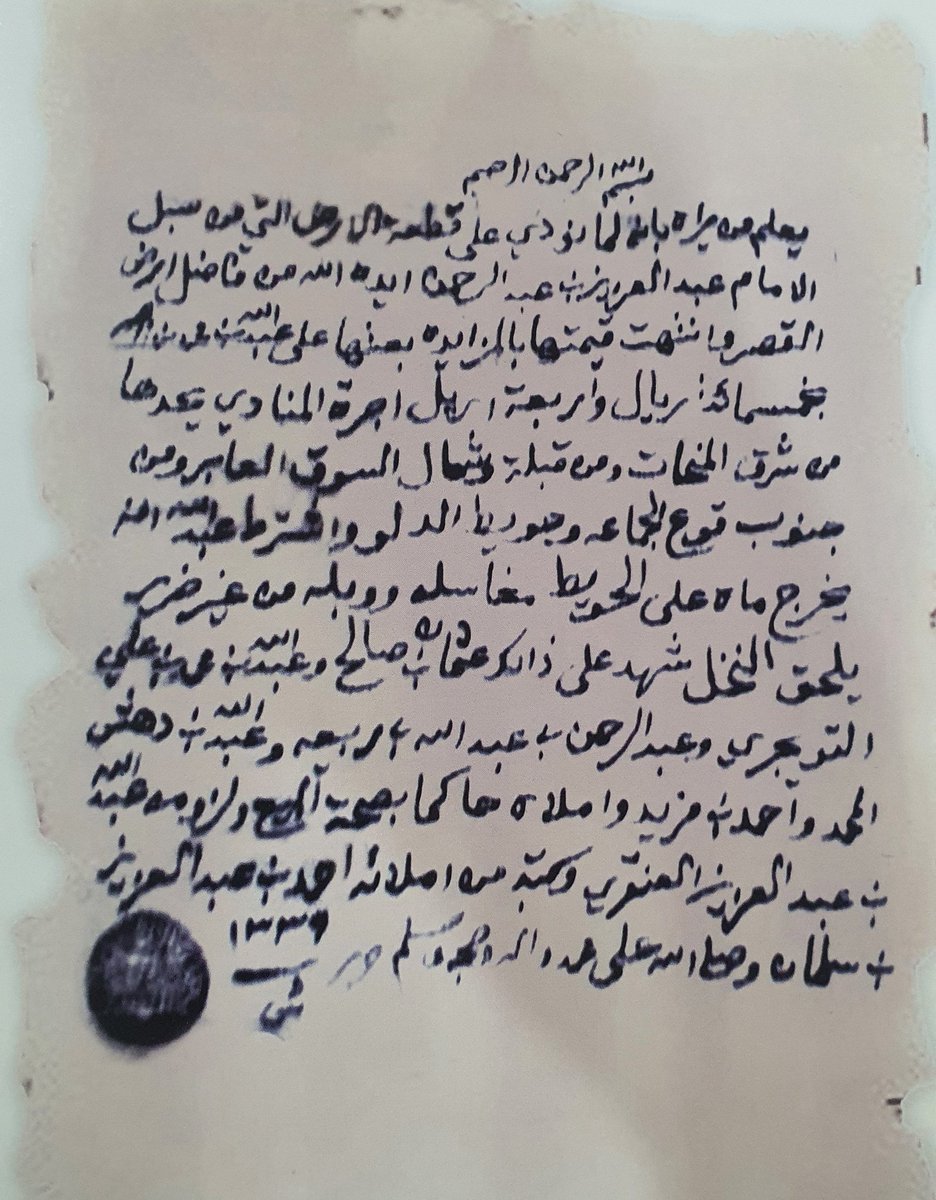 بسم الله الرحمن الرحيم
يعلم من يراه بانه لما نودي على قطعة الارض التي من سبل
الامام عبد العزيز بن عبد الرحمن ايده الله من فاضل ارض
القصر وانتهت قيمتها بالمزايده بعتها على عبد الله بن محمد بن
بخمسمائة ريال وأربعة اريل اجرة المنادي يحدها
من شرق المنحات ومن قبلة وشمال السوق العابر ومن
جنوب قوع الجماعه وجوريط الدلو واشترط عبد الله انه
يخرج ماه على الحويط مغاسله ووبله من غير ضرر
يلحق النخل شهد على ذالك عثمان بن صالح وعبد الله بن محمد بن علي
التويجري وعبد الرحمن بن عبد الله بن ربيعه وعبد الله بن دهش
المحمد وأحمد بن مزيد واملاه حاكما بصحة البيع ولزومه عبد الله
بن عبد العزيز العنقري وكتبه من املائه احمد بن عبد العزيز
بن سلمان وصلى الله على محمد واله وصحبه وسلم حرر
١٣٣٩